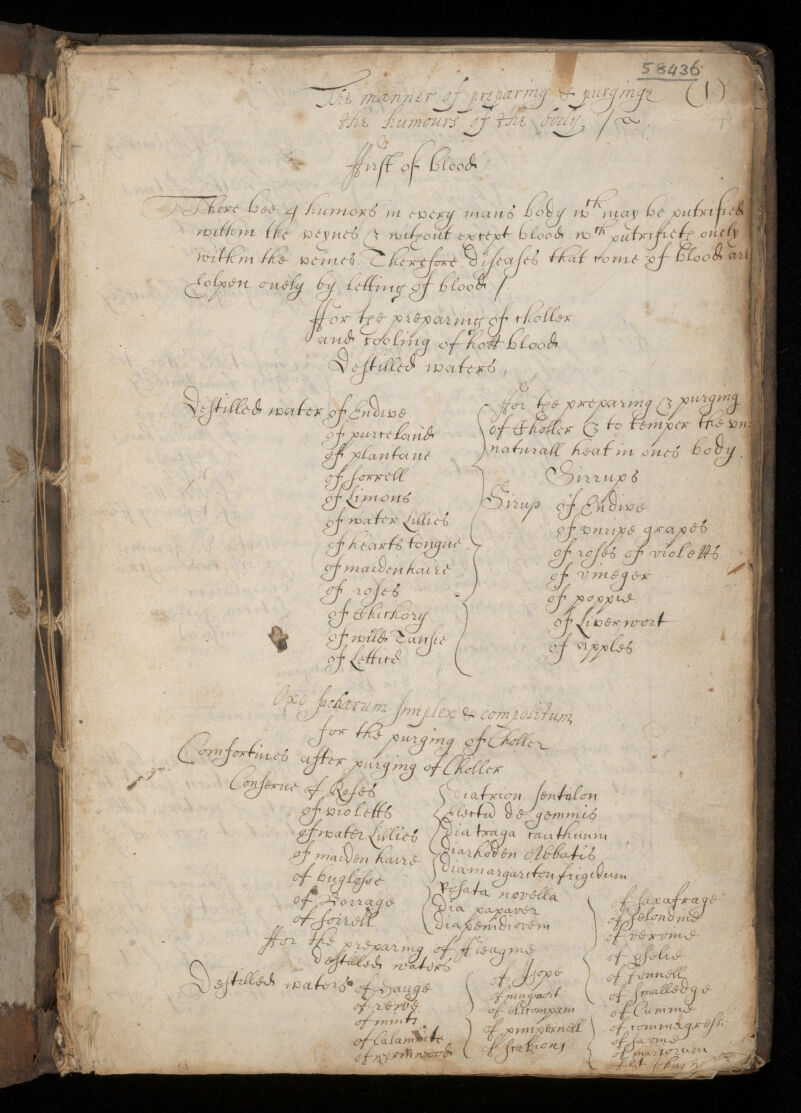 58436
The manner of preparing & purginge (1)
the humours of the body /
ffirst of blood
There bee 4 humors in every mans body wth may be putrified
within the veynes & without except blood wth putrifieth onely
within the veines. Therefore diseases that come of blood are
holpen onely by letting of blood /.
ffor the preparing of choller
and cooling of hott blood
Destilled waters,
Destilled water of Endive
of purcelaine
of plantane
of sorrell
of Limons
of water Lillies
of hearts tongue
of maidenhaire
of roses
of Chickory
of wild Tansie
of Lettice
ffor the preparing & purging
of Choller & to temper the un
naturall heat in ones body.
Sirrups
Sirup of Endive
of unripe grapes
of roses of violetts
of vineger
of poppie
of Liverwort
of apples
Oxo sucharum simplex & compositum
for the purging of Choller
Comfortives after purging of Choller
Conserue of Roses
of violetts
of water Lillies
of maiden haire
of buglosse
of Borrage
of sorrell
Diatrion sentalon
Electu de gemmis
Dia traga canthunm
Diarhoden Abbatis
Diamargariton frigidum
Rosata novella
Dia papaver
Diapenidiovem
ffor the preparing of fleagme
Destiled waters
Destilled waters of Sauge
of rewe
of mints
of Calaminte
of wormwood
of Isope
of mugwort
of elicompam
of pimpernell
of scabions
of saxafrage
of selondine
of vervine
of
of fennell
of smalledge
of Cumme
of
of savine
of mariorum
of st Johns w